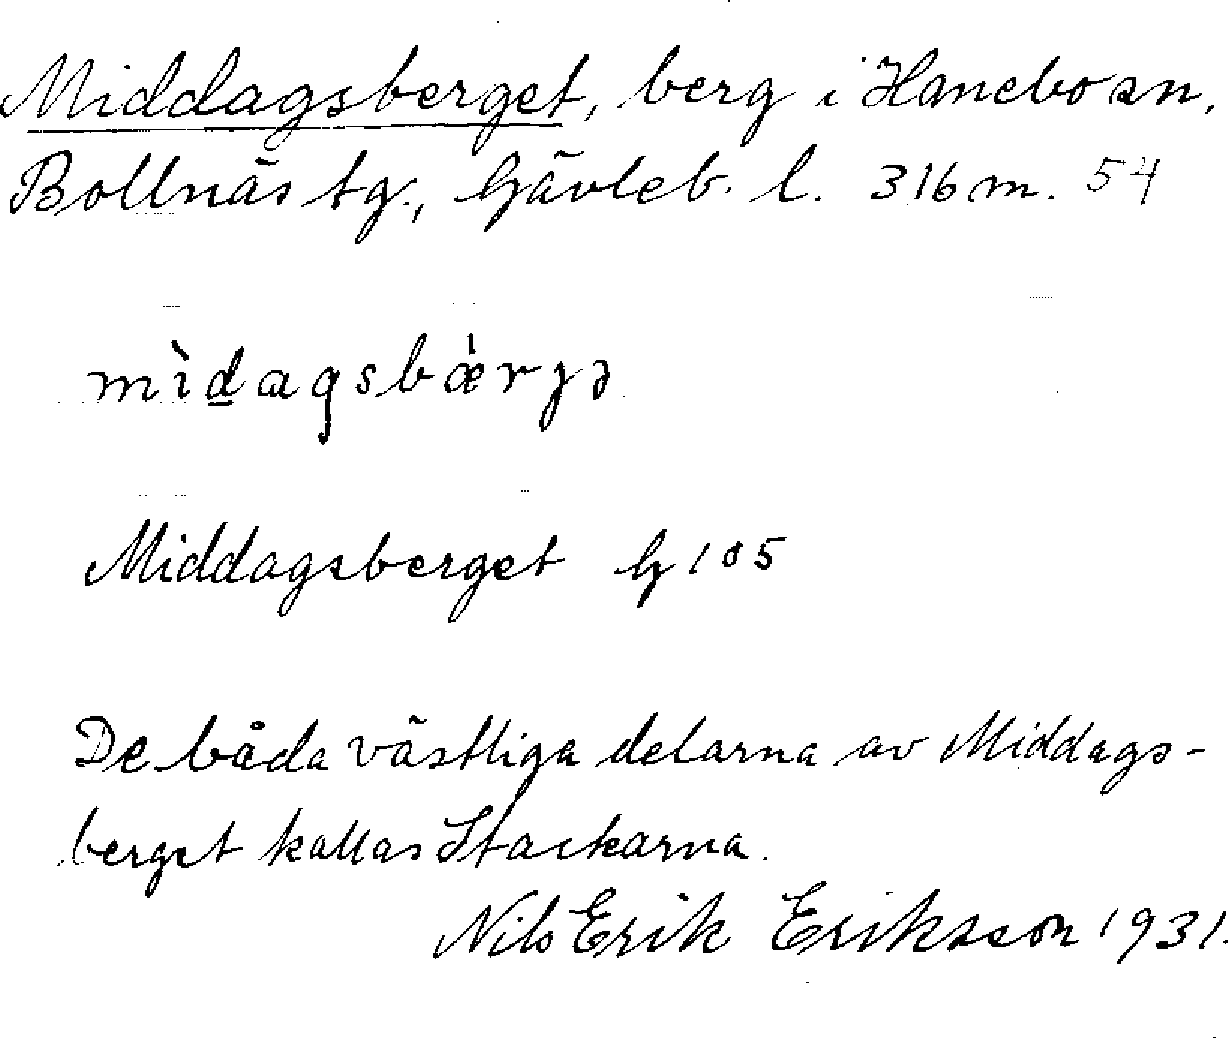 Middagsberget, berg i Hanebo sn,
Bollnäs tg., Gävleb. l. 316 m. 54
mìdagsbǽrȷə
Middagsberget G 105
De båda västliga delarna av Middags-
berget kallas Stackarna.
Nils Erik Eriksson 1931.